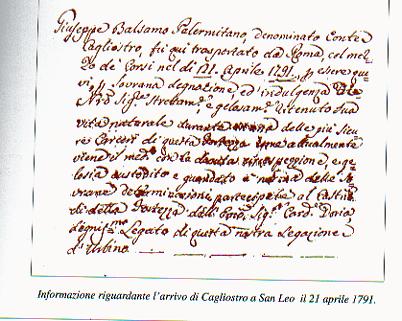 Giuseppe Balsamo Palermitano, denominato Conte
Cagliostro, fu qui trasportato da Roma, col mez
zo de' Corsi nel dì 21. Aprile 1791. p essere qui
vi p Sovrana degnazione, ed indulgenza
Nro Sigre strettamte, e gelosamte ritenuto sua
vita naturale durante in una delle più sicu
re Carceri di questa Fortezza attualmente
viene il medo con la circospezione, e ge
losia custodito e guardato a norma delle So
vrane determinazioni partecipate al Castno
di detta Fortezza dall' Sigr Card. Doria
degnismo Legato di questa nostra Legazione
d'Urbino
Informazione riguardante l'arrivo di Cagliostro a San Leo il 21 aprile 1791.